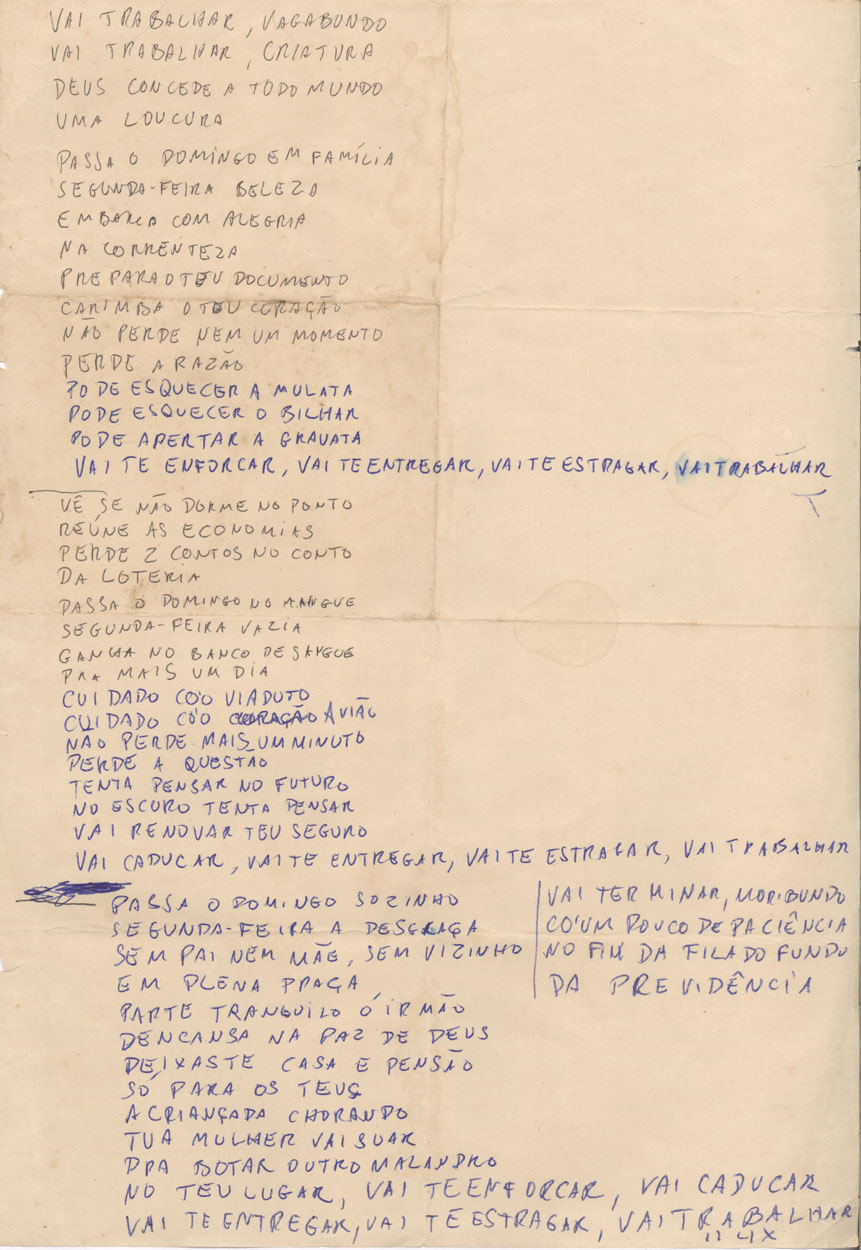 VAI TRABALHAR, VAGABUNDO
VAI TRABALHAR, CRIATURA
DEUS CONCEDE A TODO MUNDO
UMA LOUCURA
PASSA O DOMINGO EM FAMÍLIA
SEGUNDA-FEIRA BELEZA
EMBARCA COM ALEGRIA
NA CORRENTEZA
PREPARA O TEU DOCUMENTO
CARIMBA O TEU CORAÇÃO
NÃO PERDE NEM UM MOMENTO
PERDE A RAZÃO
PODE ESQUECER A MULATA
PODE ESQUECER O BILHAR
PODE APERTAR A GRAVATA
VAI TE ENFORCAR, VAI TE ENTREGAR, VAI TE ESTRAGAR, VAI TRABALHAR
VÊ SE NÃO DORME NO PONTO
REÚNE AS ECONOMIAS
PERDE 2 CONTOS NO CONTO
DA LOTERIA
PASSA O DOMINGO NO MANGUE
SEGUNDA-FEIRA VAZIA
GANHA NO BANCO DE SANGUE
PRA MAIS UM DIA
CUIDADO CO'O VIADUTO
CUIDADO CO'O CORAÇÃO AVIÃO
NÃO PERDE MAIS UM MINUTO
PERDE A QUESTÃO
TENTA PENSAR NO FUTURO
NO ESCURO TENTA PENSAR
VAI RENOVAR TEU SEGURO
VAI CADUCAR, VAI TE ENTREGAR, VAI TE ESTRAGAR, VAI TRABALHAR
PASSA O DOMINGO SOZINHO
SEGUNDA-FEIRA A DESGRAÇA
SEM PAI NEM MÃE, SEM VIZINHO
EM PLENA PRAÇA
VAI TERMINAR, MORIBUNDO
CO'UM POUCO DE PACIÊNCIA
NO FIM DA FILA DO FUNDO
DA PREVIDÊNCIA
PARTE TRANQUILO Ó IRMÃO
DENCANSA NA PAZ DE DEUS
DEIXASTE CASA E PENSÃO
SÓ PARA OS TEUS
A CRIANÇADA CHORANDO
TUA MULHER VAI SUAR
PRA BOTAR OUTRO MALANDRO
NO TEU LUGAR, VAI TE ENFORCAR, VAI CADUCAR
VAI TE ENTREGAR, VAI TE ESTRAGAR, VAI TRABALHAR